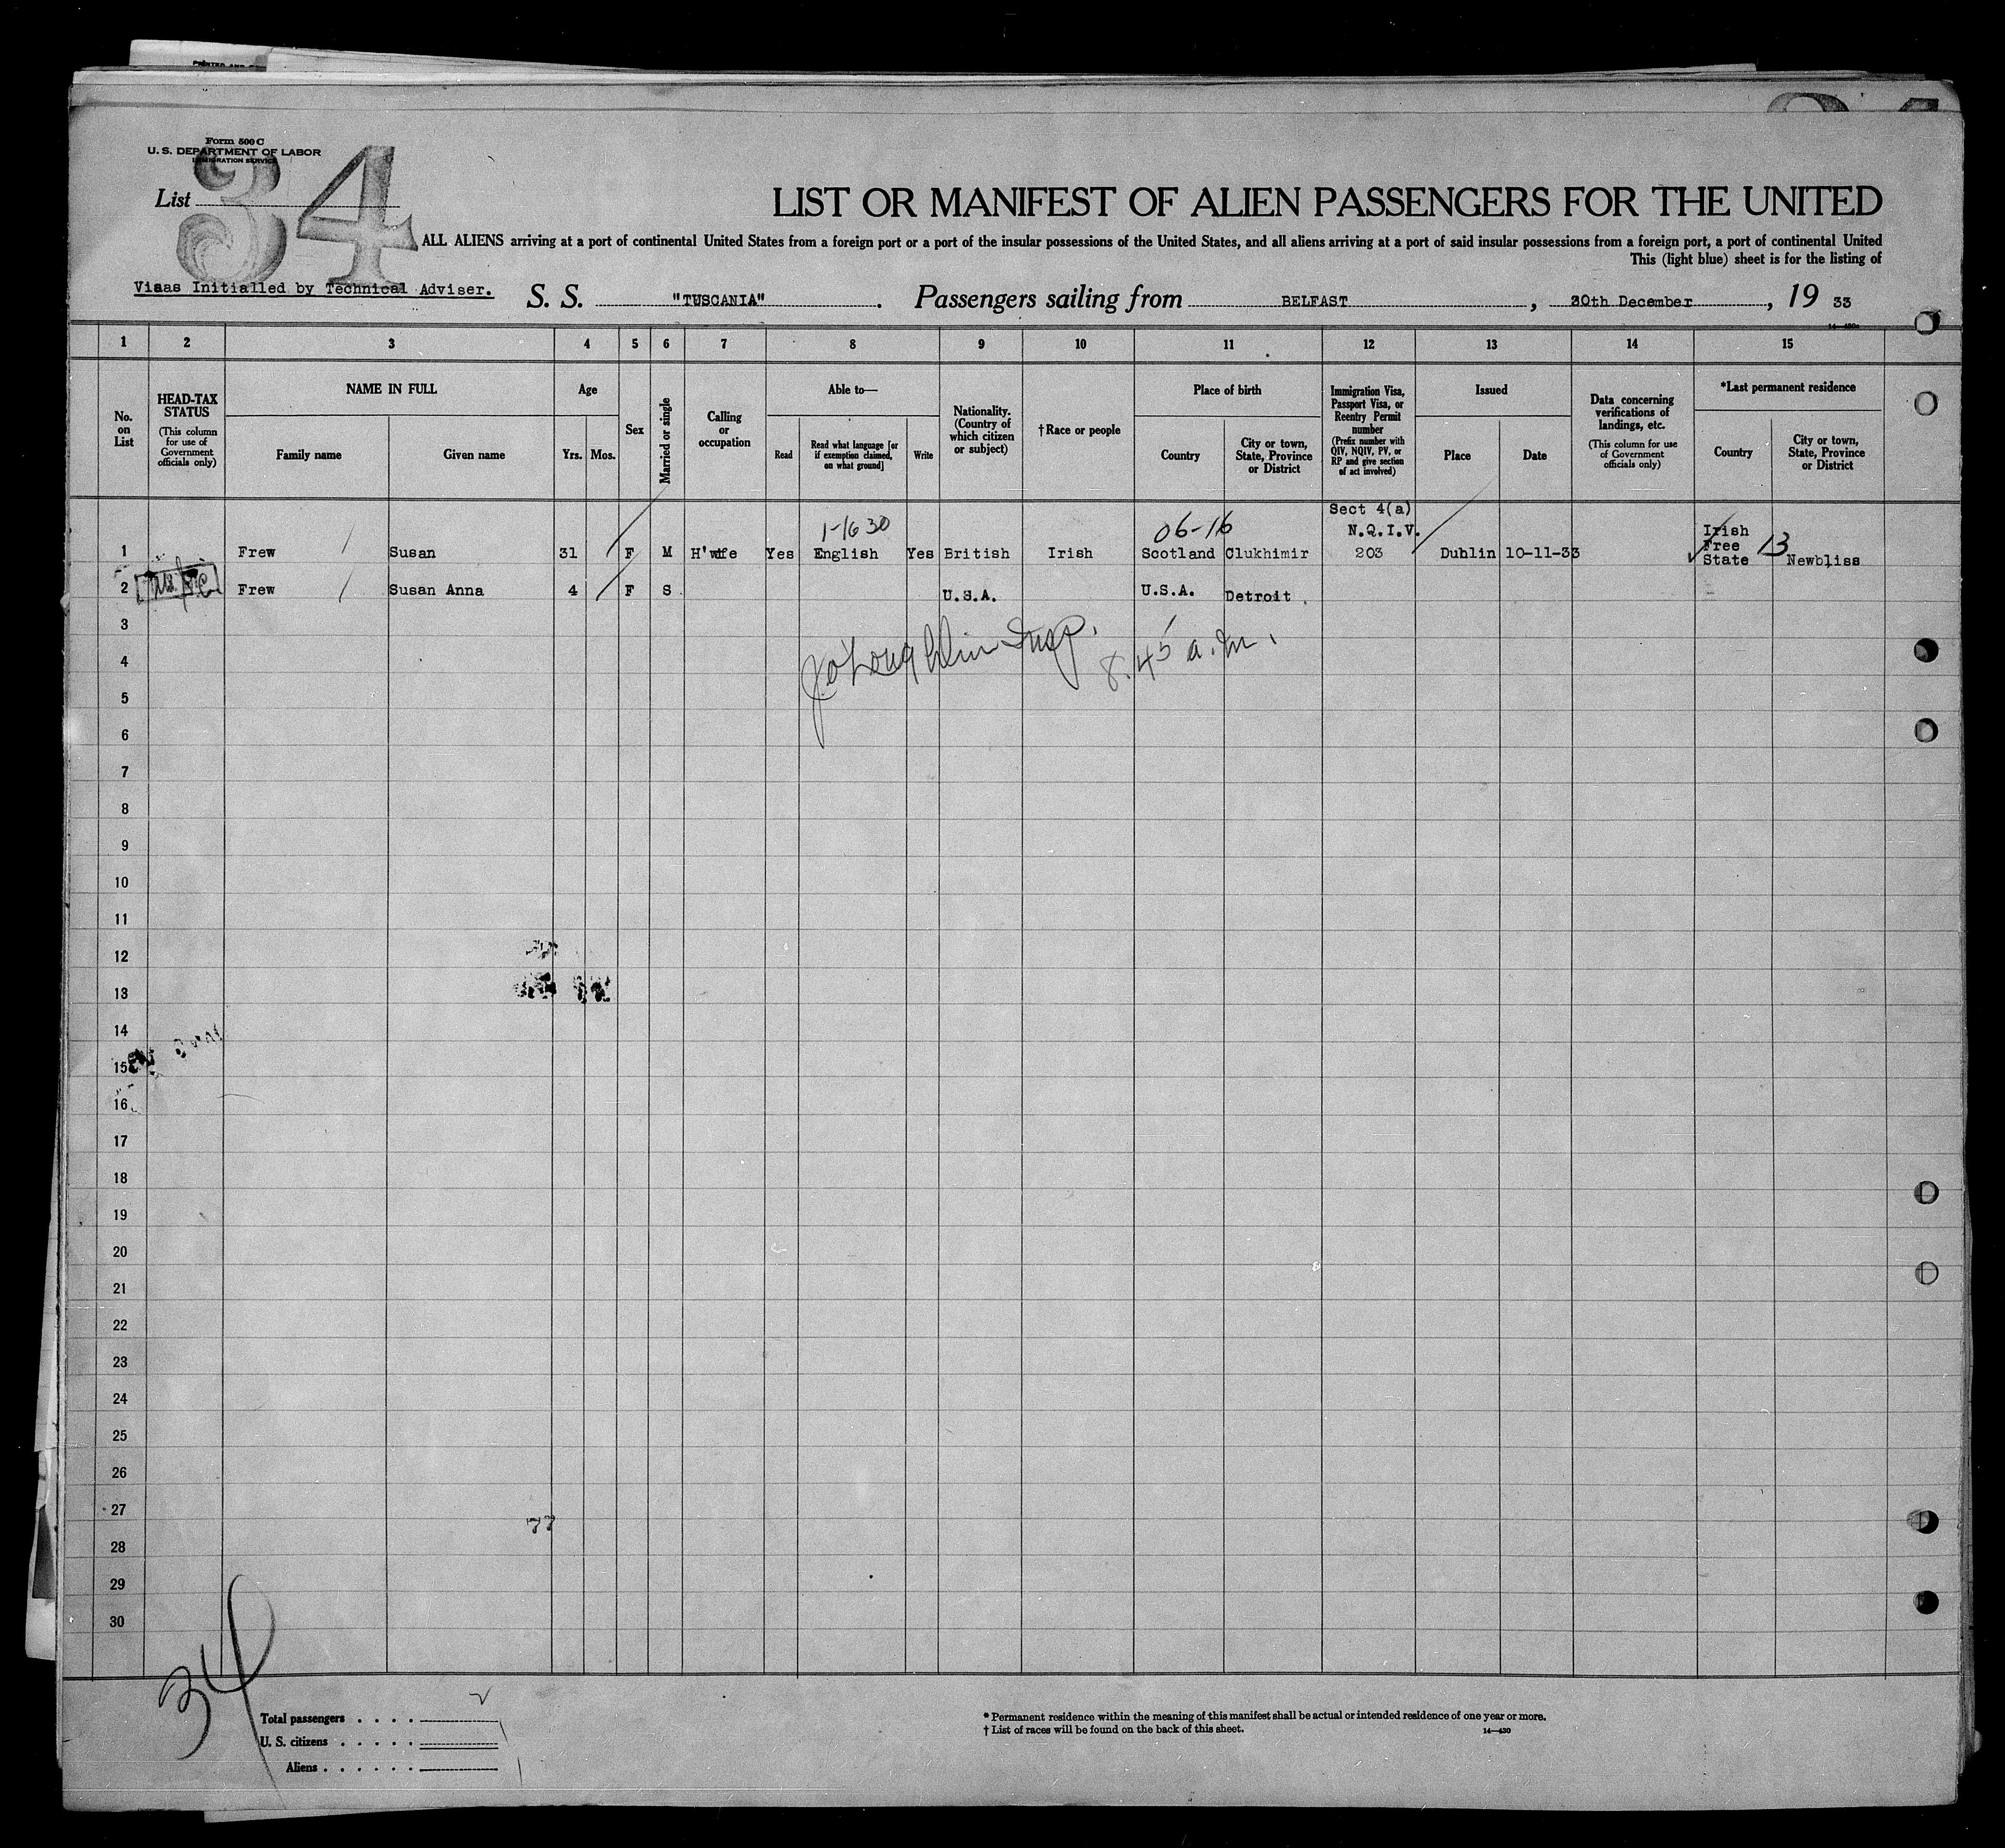 PRINTED AND
Form 500 C
U. S. DEPARTMENT OF LABOR
IMMIGRATION SERVICE
List
34
LIST OR MANIFEST OF ALIEN PASSENGERS FOR THE UNITED
ALL ALIENS arriving at a port of continental United States from a foreign port or a port of the insular possessions of the United States, and all aliens arriving at a port of said insular possessions from a foreign port, a port of continental United
This (light blue) sheet is for the listing of
Visas Initialled by Technical Adviser.
S. S. "TUSCANIA". Passengers sailing from BELFAST, 30th December, 19 33
1 2 3 4 5 6 7 8 9 10 11 12 13 14 15
No. on List
HEAD-TAX STATUS
(This column for use of Government officials only)
NAME IN FULL
Family name
Given name
Age
Yrs. Mos.
Sex
Married or single
Calling or occupation
Able to—
Read
Read what language [or if exemption claimed, on what ground]
Write
Nationality. (Country of which citizen or subject)
†Race or people
Place of birth
Country
City or town, State, Province or District
Immigration Visa, Passport Visa, or Reentry Permit number
(Prefix number with QIV, NQIV, PV, or RP and give section of act involved)
Issued
Place
Date
Data concerning verifications of landings, etc.
(This column for use of Government officials only)
*Last permanent residence
Country
City or town, State, Province or District
Sect 4(a)
1-1630 06-16 N.Q.I.V. Irish
Free 13
1 Frew Susan 31 F M H'wife Yes English Yes British Irish Scotland Clukhimir 203 Dublin 10-11-33 State Newbliss
2 Frew Susan Anna 4 F S U.S.A. U.S.A. Detroit
3
J. O'Loughlin Insp. 8.45 a.m.
4
5
6
7
8
9
10
11
12
13
14
15
16
17
18
19
20
21
22
23
24
25
26
27
77
28
29
30
34
Total passengers
U. S. citizens
Aliens
* Permanent residence within the meaning of this manifest shall be actual or intended residence of one year or more.
† List of races will be found on the back of this sheet.
14—430